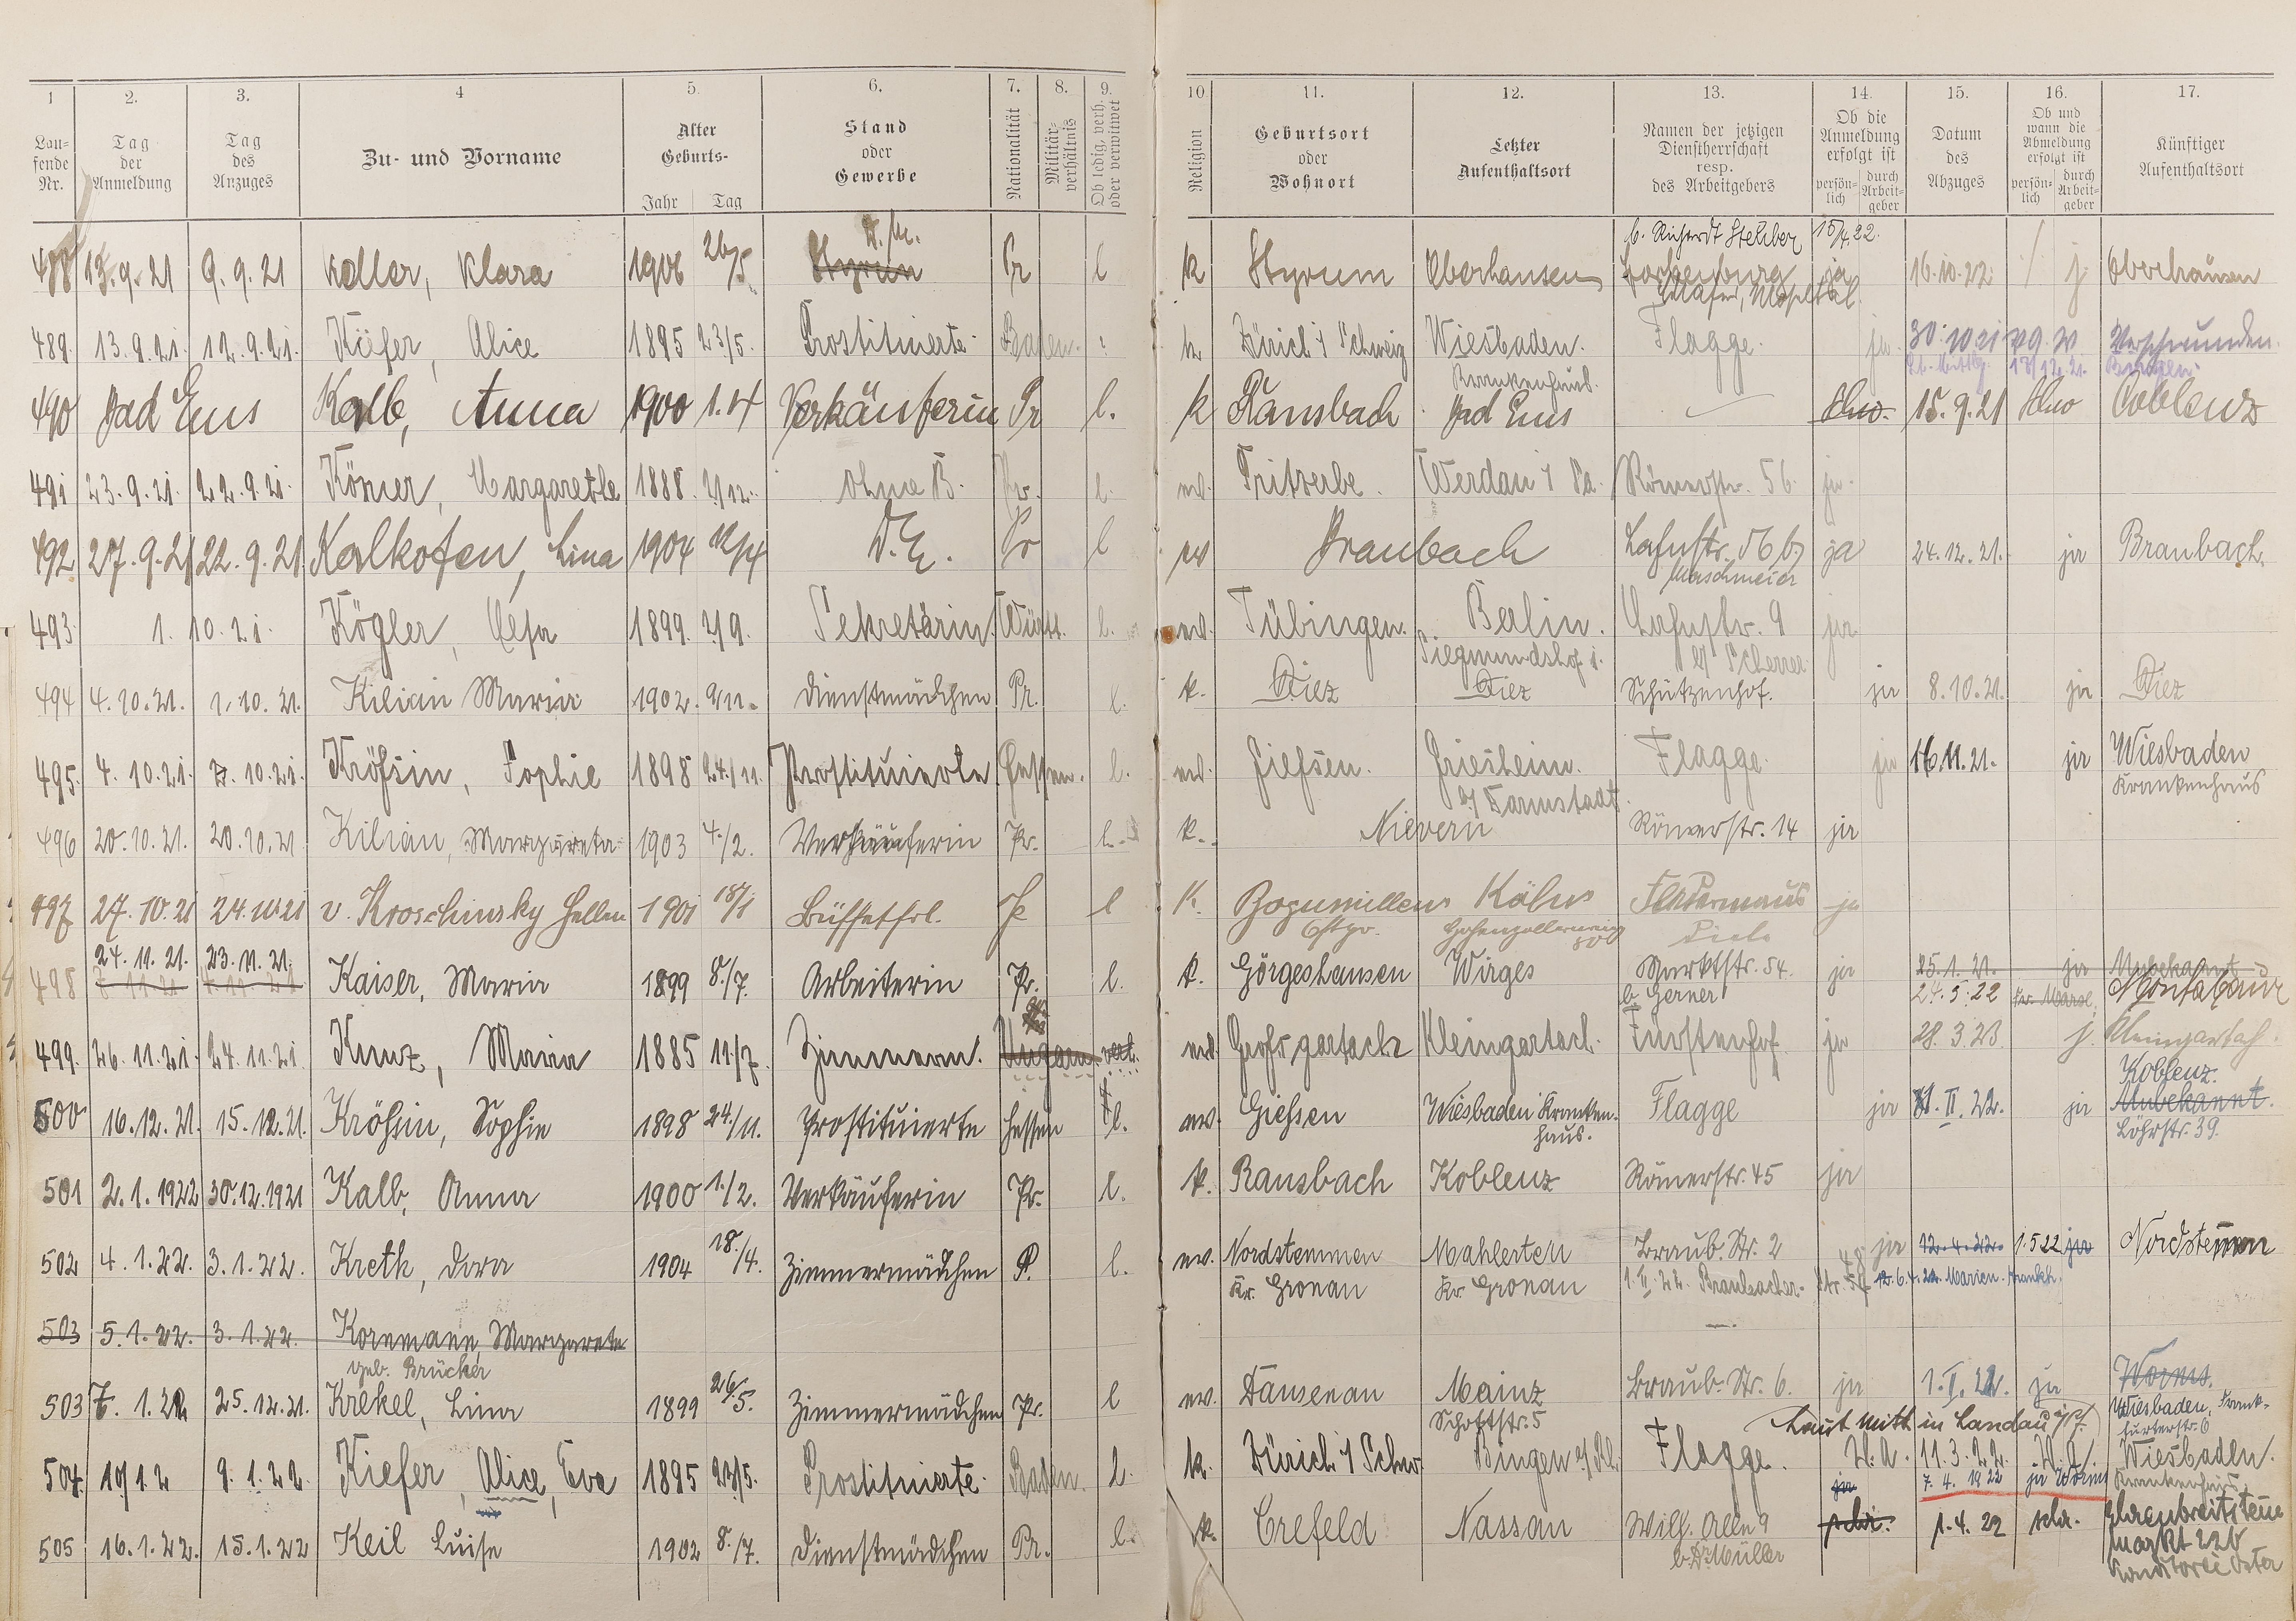 1 2. 3. 4 5. 6. 7. 8. 9. 10 11. 12. 13. 14. 15. 16. 17.
Lau-fende Nr. Tag der Anmeldung Tag des Anzuges Zu- und Vorname Alter Geburts- Jahr Tag Stand oder Gewerbe Nationalität Militär-verhältnis Ob ledig, verh. oder verwitwet Religion Geburtsort oder Wohnort Letzter Aufenthaltsort Namen der jetzigen Dienstherrschaft resp. des Arbeitgebers Ob die Anmeldung erfolgt ist persön-lich durch Arbeit-geber Datum des Abzuges Ob und wann die Abmeldung erfolgt ist persön-lich durch Arbeit-geber Künftiger Aufenthaltsort
15/4.22.
488 13.9.21 9.9.21 Koller, Klara 1906 26/5 Styrum Pr l k Styrum Oberhausen ja 16.10.22 / j Oberhausen
489. 13.9.21. 12.9.21. Kiefer, Alice 1895 23/5. Prostituierte. Baden. k. Zürich i/ Schweiz Wiesbaden. Flagge. ja. 30.10.21 Verschwunden.
Krankenhaus. 13/12.21. Bingen.
490 Bad Ems Kalb, Anna 1900 1.4 Verkäuferin Pr l. k Ransbach Bad Ems 15.9.21 Coblenz
491 23.9.21. 22.9.21. Körner, Margarethe 1888. 2/12. ohne B. Pr. l. ev. Pritzerbe. Werdau i/ Sa. Römerstr. 56. ja.
492 27.9.21 22.9.21 Kalkofen, Lina 1904 12/4 Pr l ev Braubach Lahnstr. 56 b/ ja 24.12.21. ja Braubach.
Maschmeier
493. 1. 10. 21. Kögler, 1899. 2/9. Sekretärin. Württ. l. ev. Tübingen. Berlin. Lahnstr. 9 ja
Siegmundshof 1. b/ Scherrer
494 4.10.21. 1.10.21. Kilian Maria 1902. 9/11. Dienstmädchen Pr. l. k. Diez Diez Schützenhof. ja 8.10.21. ja Diez
495. 4.10.21. 3.10.21. Kröhsin, Sophie 1898 24./11. Prostituierte Hessen. l. ev. Giessen. Griesheim. Flagge. ja 16.11.21. ja Wiesbaden
b/ Darmstadt. Krankenhaus
496 20.10.21. 20.10.21 Kilian, Margareta 1903 4./2. Verkäuferin Pr. l. k. Nievern Römerstr. 14 ja
497 27.10.21 24.10.21 v. Kroschinsky Hellen 1901 18/1 Büffetfrl. l K. Köln Fledermaus ja
Ostpr. Hohenzollernring
24.11.21. 23.11.21.
498 Kaiser, Maria 1899 8./7. Arbeiterin Pr. l. k. Görgeshausen Wirges Marktstr. 54. ja 25.1.21. ja Unbekannt
b. Gerner 24.5.22 Montabaur
499. 26.11.21. 24.11.21. Kunz, Maria 1885 11./7. Zimmerm. Ungarn. ev. Grossgartach Kleingartach. Fürstenhof. ja 28.3.23. j. Kleingartach.
Koblenz.
500 16.12.21. 15.12.21. Kröhsin, Sophie 1898 24./11. Prostituierte Hessen l. ev. Giessen Wiesbaden Kranken- Flagge ja 11.II.22. ja Unbekannt.
haus. Löhrstr. 39.
501 2.1.1922 30.12.1921 Kalb, Anna 1900 1./2. Verkäuferin Pr. l. k. Ransbach Koblenz Römerstr. 45 ja
502 4.1.22. 3.1.22. Kreth, Dora 1904 18./4. Zimmermädchen P. l. ev. Nordstemmen Mahlerten Braub. Str. 2 ja 12.4.22. 1.5.22 ja Nordstemmen
Kr. Gronau Kr. Gronau 1.II.22. Braubacher- Str. Marien-Krankh.
503 5.1.22. 3.1.22. Kornmann, Margarete
geb. Brücker
503 7.1.22 25.12.21. Krekel, Lina 1899 26./5. Zimmermädchen Pr. l ev. Dausenau Mainz Braub. Str. 6. ja 1.II.22. ja Worms.
Schottstr. 5 Laut Mitt. in Landau Wiesbaden, Frank-furterstr. 6
504. 10/1.2 9.1.22. Kiefer, Alice, Eva 1895 23/5. Prostituierte. Baden. l. k. Zürich i/ Schw. Bingen a/ Rh. Flagge. 11.3.22. Wiesbaden.
ja 7.4.1922 ja Worms Krankenhaus
505 16.1.22. 15.1.22 Keil Luise 1902 8./7. Dienstmädchen Pr. l. k. Crefeld Nassau Wilh. Allee 9 schr. 1.4.22 schr. Ehrenbreitstein
b. Dr. Müller Markt 226
Konditorei